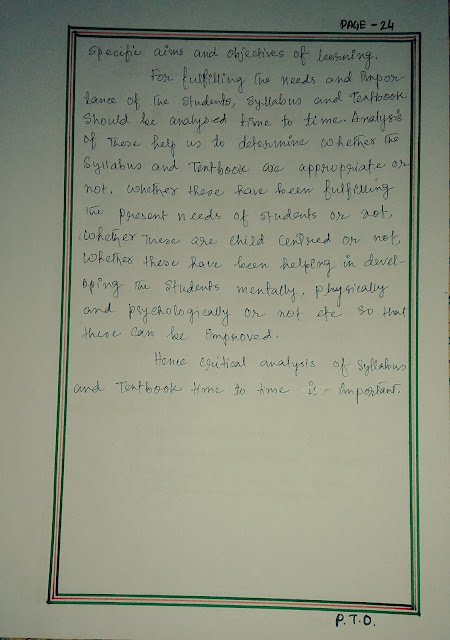 PAGE - 24
Specific aims and objectives of learning.
For fulfilling the needs and impor-
tance of the students, syllabus and Textbook
should be analysed time to time. Analysis
of these help us to determine whether the
Syllabus and Textbook are appropriate or
not, whether these have been fulfilling
the present needs of students or not,
whether these are child centred or not,
whether these have been helping in devel-
oping the students mentally, physically
and psychologically or not etc so that
these can be improved.
Hence critical analysis of syllabus
and Textbook time to time is important.
P.T.O.